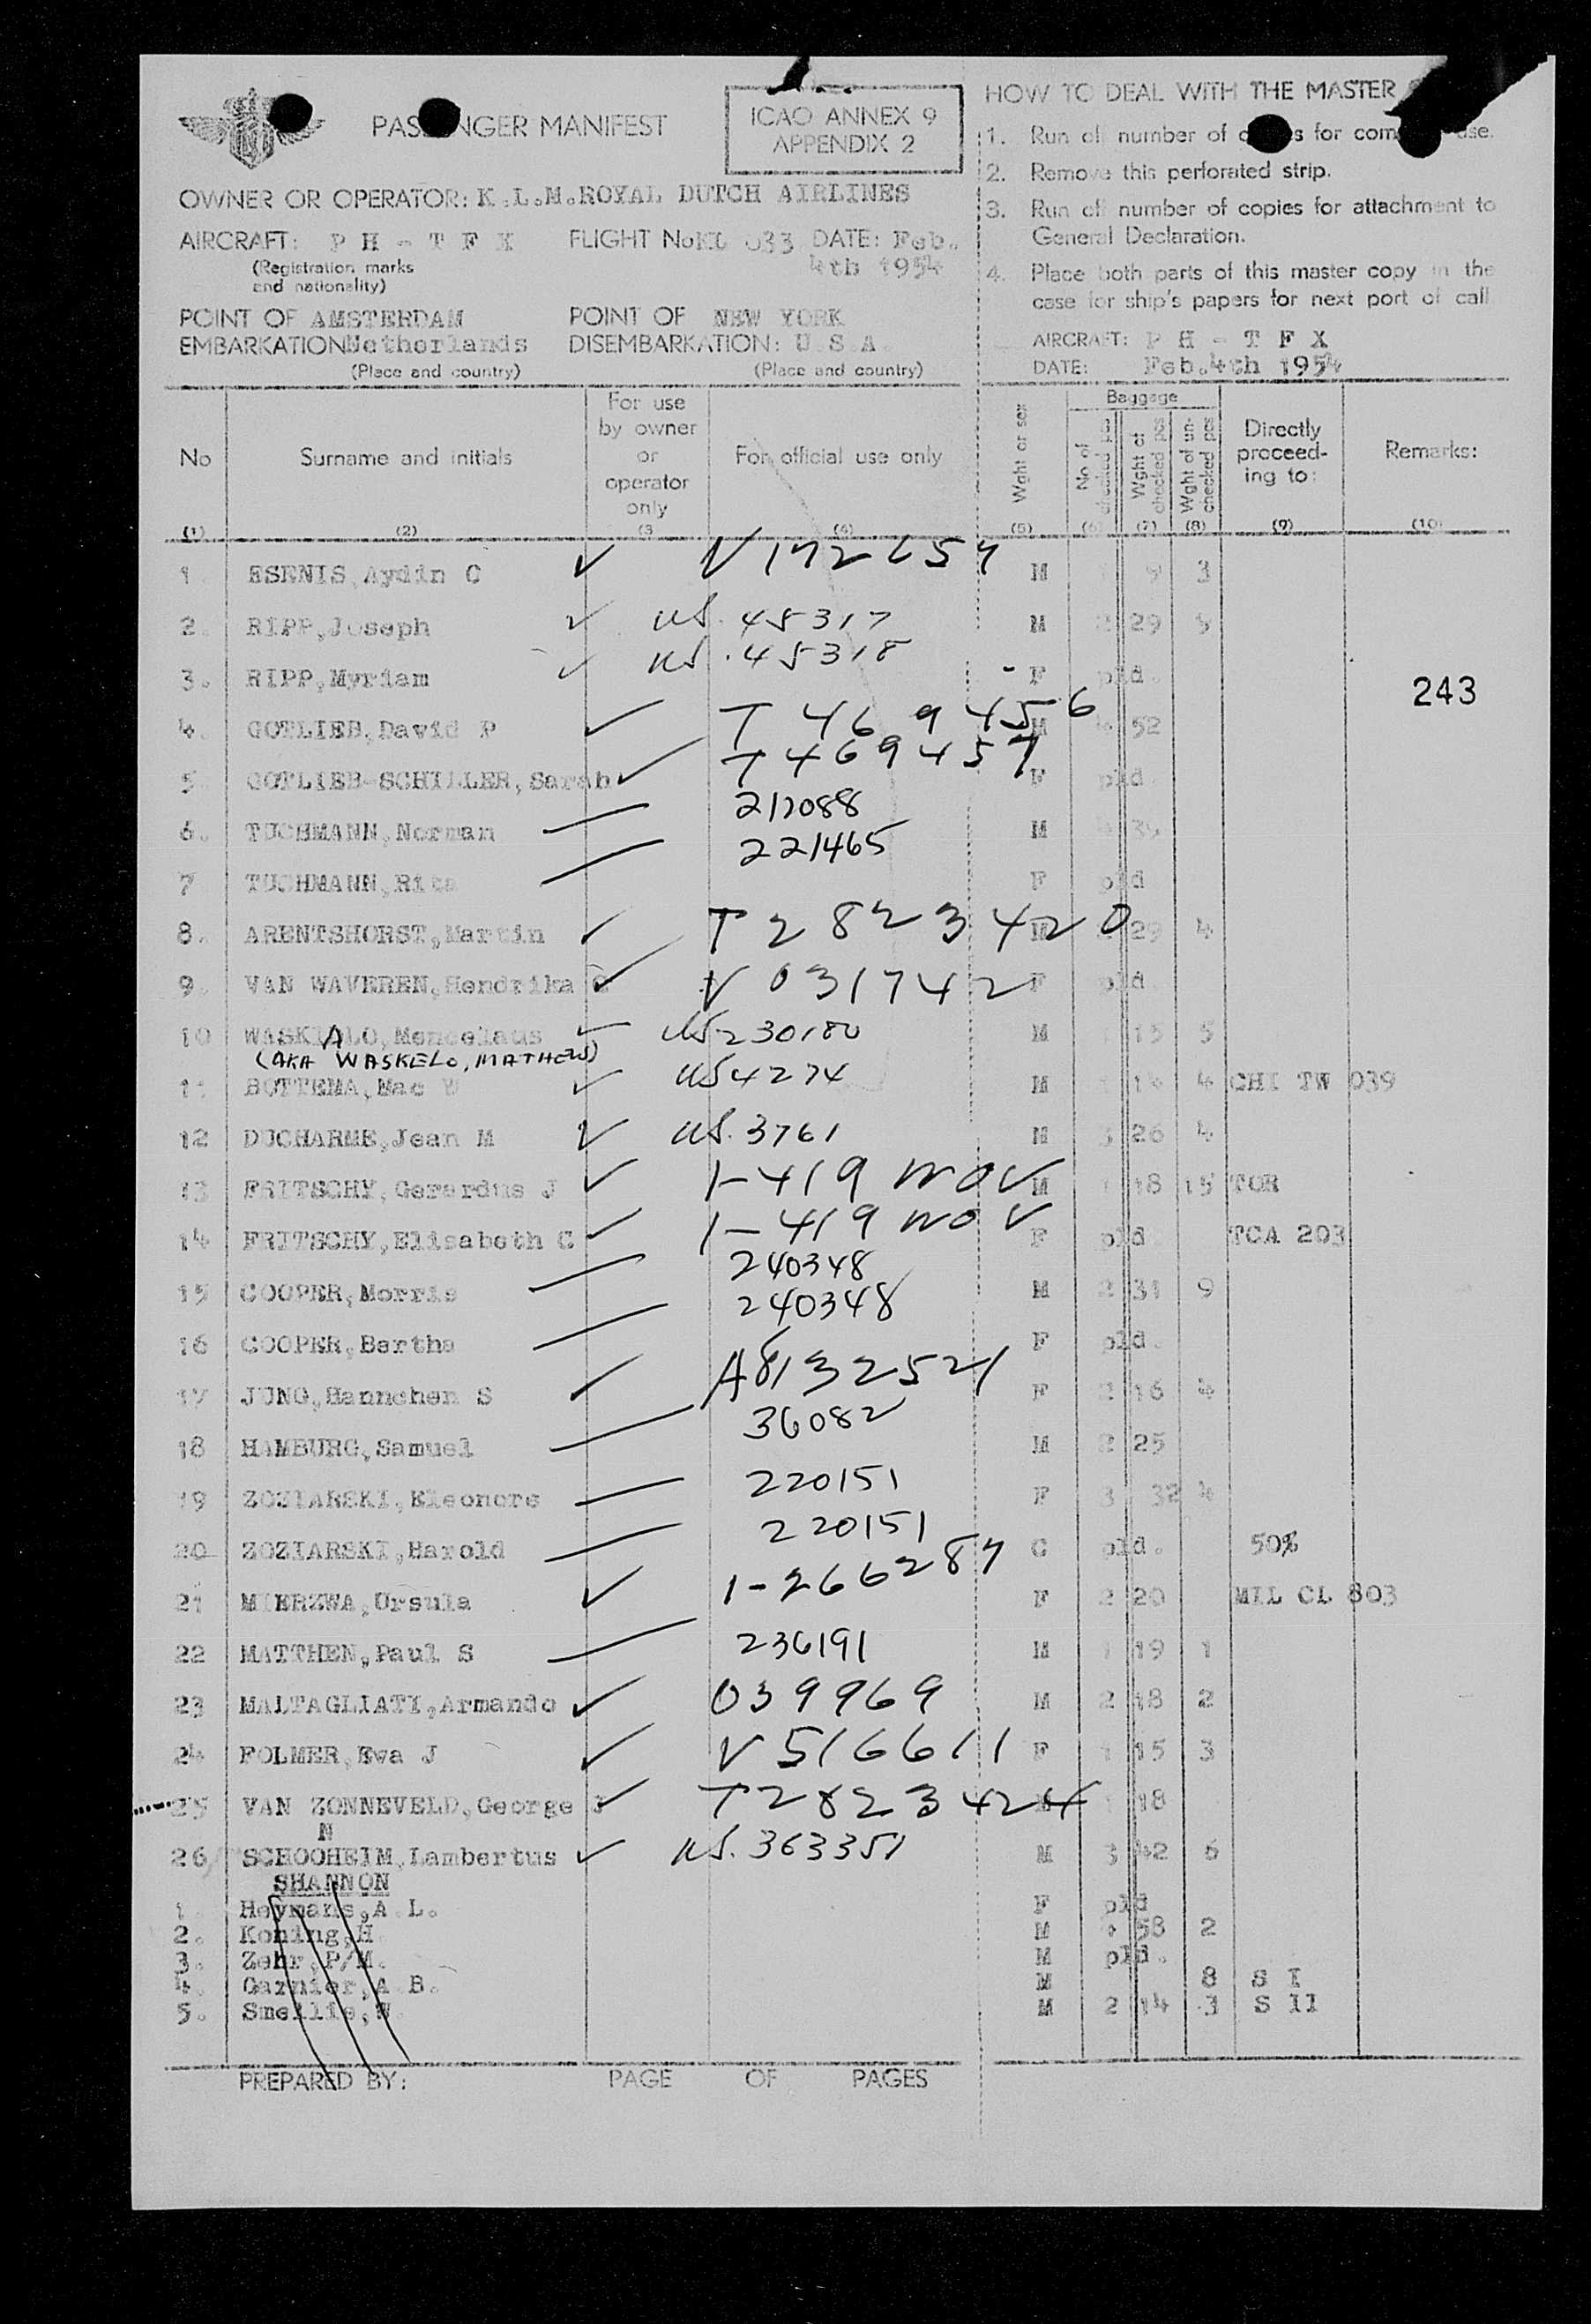 PASSENGER MANIFEST
ICAO ANNEX 9
APPENDIX 2
OWNER OR OPERATOR: K.L.M. ROYAL DUTCH AIRLINES
AIRCRAFT: P H - T F X FLIGHT No KL 033 DATE: Feb.
4th 1954
(Registration marks
and nationality)
POINT OF AMSTERDAM POINT OF NEW YORK
EMBARKATION: Netherlands DISEMBARKATION: U.S.A.
(Place and country) (Place and country)
HOW TO DEAL WITH THE MASTER
1. Run off number of copies for use.
2. Remove this perforated strip.
3. Run off number of copies for attachment to
General Declaration.
4. Place both parts of this master copy in the
case for ship's papers for next port of call
AIRCRAFT: P H - T F X
DATE: Feb.4th 1954
No Surname and initials For use by owner or operator only For official use only Wght or sex Baggage No of checked pcs Wght of checked pcs Wght of un-checked pcs Directly proceed-ing to: Remarks:
(1) (2) (3 (4) (5) (6) (7) (8) (9) (10)
1. ESENIS, Aydin C ✓ V172657 M 9 3
2. RIPP, Joseph ✓ US.45317 M 2 29 5
3. RIPP, Myriam ✓ US.45318 F pld.
243
4. GOTLIEB, David P ✓ T 469456 M 4 52
5 GOTLIEB-SCHILLER, Sarah ✓ T469457 F pld.
6. TUCHMANN, Norman — 212088 M 4 39
7 TUCHMANN, Rita — 221465 F pld
8. ARENTSHORST, Martin ✓ T2823420 M 29 4
9. VAN WAVEREN, Hendrika C ✓ V031742 F pld
10 ✓ US230180 M 15 5
A
(AKA WASKELO, MATHEW)
11 BOTTEMA, Mac W ✓ US4274 M 1 14 4 CHI TW 039
12 DUCHARME, Jean M ✓ US.3761 M 3 26 4
13 FRITSCHY, Gerardus J ✓ 1-419 NOV M 1 18 15 TOR
14 FRITSCHY, Elisabeth C ✓ 1-419 NOV F pld TCA 203
15 COOPER, Morris — 240348 M 2 31 9
16 COOPER, Bertha — 240348 F pld.
17 JUNG, Hannchen S ✓ A8132521 F 2 16 4
18 HAMBURG, Samuel — 36082 M 2 25
19 ZOZIARSKI, Eleonore — 220151 F 3 32 4
20 ZOZIARSKI, Harold — 220151 C pld. 50%
21 MIERZWA, Ursula ✓ 1-266287 F 2 20 MIL CL 803
22 MATTHEN, Paul S — 236191 M 1 19 1
23 MALTAGLIATI, Armando ✓ 039969 M 2 18 2
24 FOLMER, Ewa J ✓ V516611 F 1 15 3
25 VAN ZONNEVELD, George J ✓ T2823424 M 1 18
N
26 SCHOOHEIM, Lambertus ✓ US.363351 M 3 42 6
SHANNON
1 Heymans, A.L. F pld
2. Koning, H. M 4 58 2
3. Zehr, P/M. M pld.
4. Garnier, A.B. M 8 S I
5. Smellie, W. M 2 14 3 S 11
PREPARED BY: PAGE OF PAGES